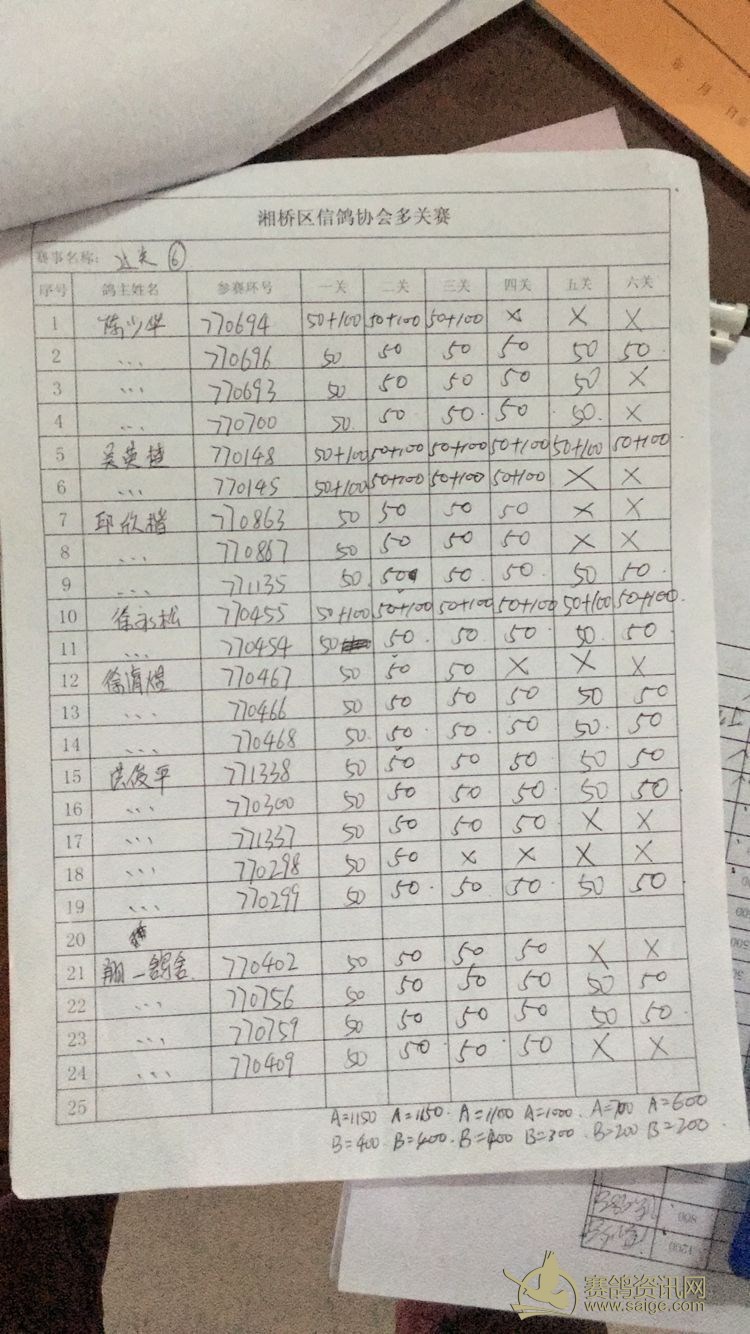 湘桥区信鸽协会多关赛
赛事名称: 过关 ⑥
序号 鸽主姓名 参赛环号 一关 二关 三关 四关 五关 六关
1 陈少华 770694 50+100 50+100 50+100 × × ×
2 、、、 770696 50 50 50 50 50 50
3 、、、 770693 50 50 50 50 50 ×
4 、、、 770700 50 50 50 50 50 ×
5 吴英 770148 50+100 50+100 50+100 50+100 50+100 50+100
6 、、、 770145 50+100 50+100 50+100 50+100 × ×
7 邱欣楷 770863 50 50 50 50 × ×
8 、、、 770867 50 50 50 50 × ×
9 、、、 771135 50 50 50 50 50 50
10 徐永松 770455 50+100 50+100 50+100 50+100 50+100 50+100
11 、、、 770454 50 50 50 50 50 50
12 徐 煜 770467 50 50 50 × × ×
13 、、、 770466 50 50 50 50 50 50
14 、、、 770468 50 50 50 50 50 50
15 洪俊平 771338 50 50 50 50 50 50
16 、、、 770300 50 50 50 50 50 50
17 、、、 771337 50 50 50 50 × ×
18 、、、 770298 50 50 × × × ×
19 、、、 770299 50 50 50 50 50 50
20
21 翔一鸽舍 770402 50 50 50 50 × ×
22 、、、 770756 50 50 50 50 50 50
23 、、、 770759 50 50 50 50 50 50
24 、、、 770409 50 50 50 50 × ×
25
A=1150 A=1150 A=1100 A=1000 A=700 A=600
B=400 B=400 B=400 B=300 B=200 B=200
800
1200
赛鸽资讯网
www.saige.com